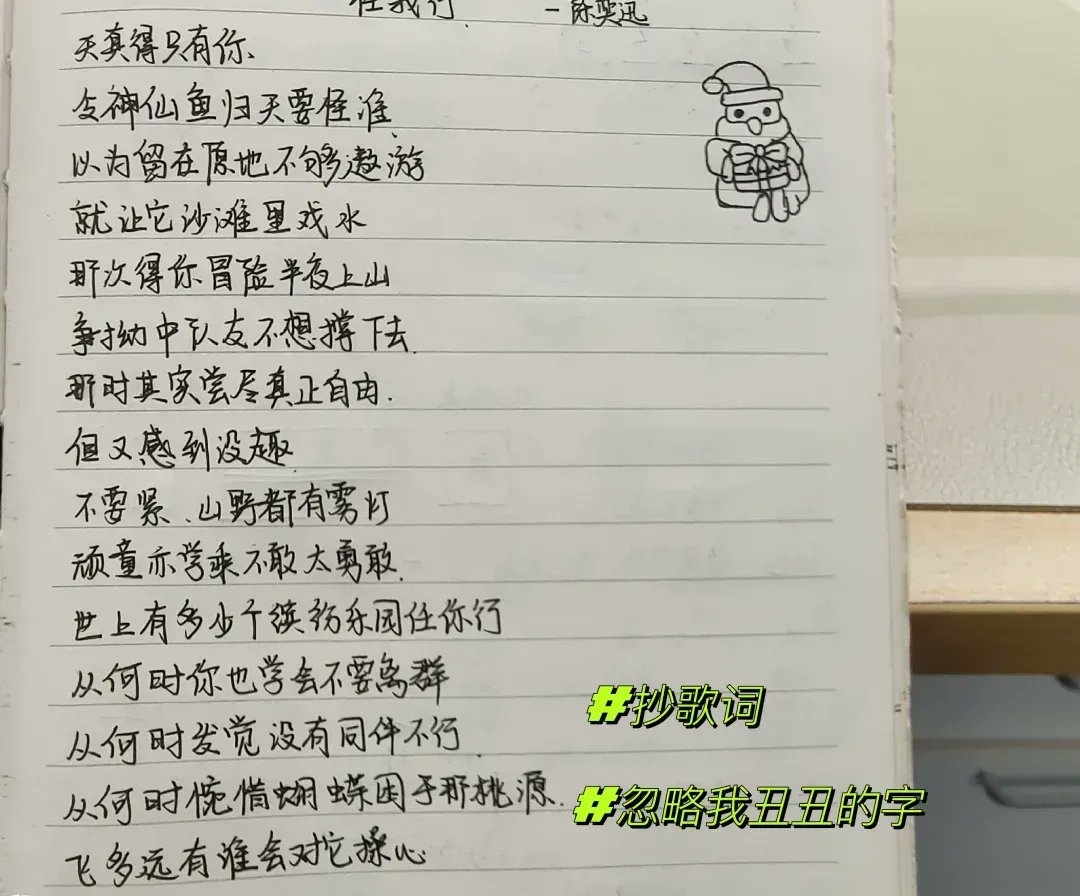 任我行 -陈奕迅
天真得只有你、
令神仙鱼归天要怪谁、
以为留在原地不够遨游
就让它沙滩里戏水
那次得你冒险半夜上山
争拗中队友不想撑下去.
那时其实尝尽真正自由.
但又感到没趣.
不要紧、山野都有雾灯
顽童亦学乖不敢太勇敢.
世上有多少个缤纷乐园任你行
从何时你也学会不要离群
从何时发觉没有同伴不行.
从何时惋惜蝴蝶困于那桃源.
飞多远有谁会对它操心
#抄歌词
#忽略我丑丑的字